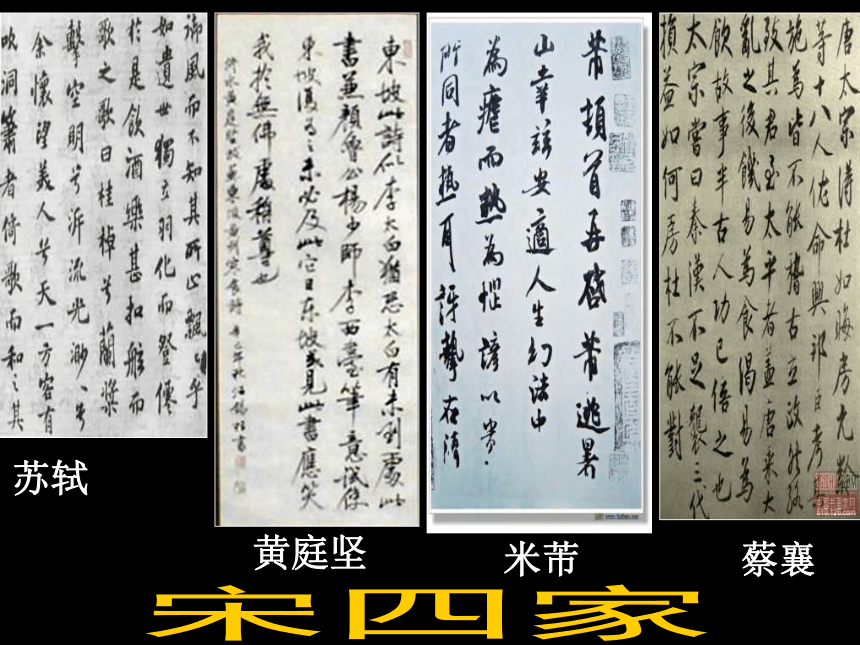 御風而不知其所止飄〻乎
如遺世獨立羽化而登僊
於是飲酒樂甚扣舷而
歌之歌曰桂棹兮蘭槳
擊空明兮泝流光渺〻兮
余懷望美人兮天一方客有
吹洞簫者倚歌而和之其
苏轼
東坡此詩似李太白猶恐太白有未到處此
書兼顏魯公楊少師李西臺筆意試使
東坡復為之未必及此它日東坡或見此書應笑
我於無佛處稱尊也
黄庭坚
芾頓首再啓芾逃暑
山幸兹安適人生幻法中
為瘧而熱為惱諺以貴
所同者熱耳訝摯在清
米芾
唐太宗得杜如晦房元齡
等十八人佐命興邦臣考其
施為皆不能稽古立政
致其君至太平者蓋唐承大
亂之後饑易為食渴易為
飲故事半古人功已倍之也
太宗嘗曰秦漢不足襲三代
損益如何房杜不能對
蔡襄
宋四家